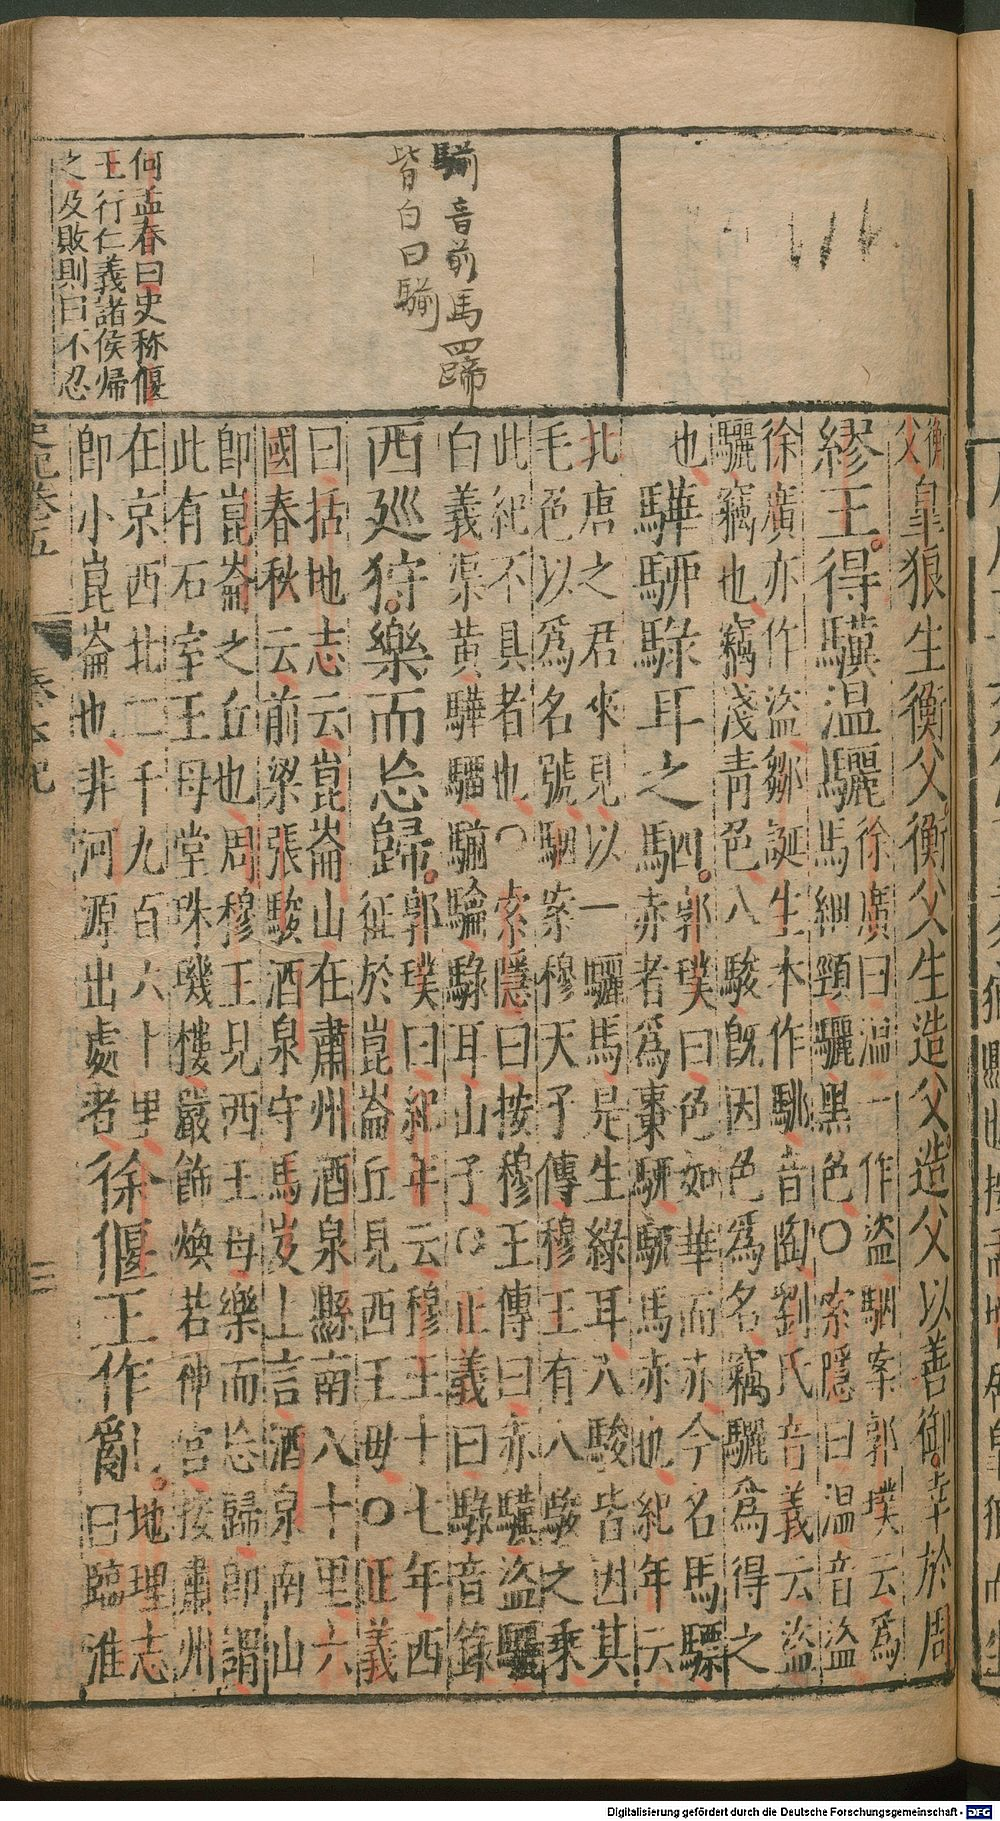 騚音前馬四蹄
皆白曰騚
何孟春曰史称偃
王行仁義諸侯帰
之及敗則曰不忍
衡
父
皐狼生衡父衡父生造父造父以善御幸於周
繆王得驥温驪
徐廣曰温一作盜駰案郭璞云爲
馬細頸驪黑色○索隱曰温音盜
徐廣亦作盜鄒誕生本作駣音陶劉氏音義云盜
驪竊也竊淺青色八駿既因色爲名竊驪爲得之
也
驊駵騄耳之駟
郭璞曰色如華而赤今名馬驃
赤者爲棗騂馬赤也紀年云
北唐之君來見以一驪馬是生綠耳八駿皆因其
毛色以爲名號駰案穆天子傳穆王有八駿之乘
此紀不具者也○索隱曰按穆王傳曰赤驥盜驪
白義渠黃驊騮騟騄耳山子○正義曰騄音錄
西廵狩樂而忘歸
郭璞曰紀年云穆王十七年西
征於崑崙丘見西王母○正義
曰括地志云崑崙山在肅州酒泉縣南八十里六
國春秋云前梁張駿酒泉守馬岌上言酒泉南山
即崑崙之丘也周穆王見西王母樂而忘歸即謂
此有石室王母堂珠璣樓嚴飾煥若神宮按肅州
在京西北二千九百六十里
即小崑崙也非河源出處者
徐偃王作亂
地理志
曰臨淮
史記卷五 秦本紀 三
Digitalisierung gefördert durch die Deutsche Forschungsgemeinschaft - DFG